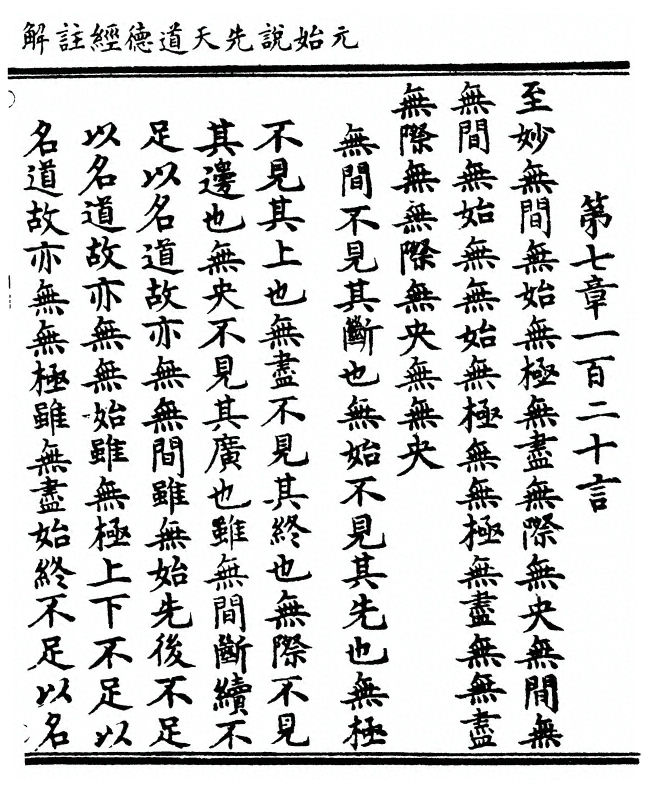 元始說先天道德經註解
第七章一百二十言
至妙無間無始無極無盡無際無央無間無
無間無始無無始無極無無極無盡無無盡
無際無無際無央無無央
無間不見其斷也無始不見其先也無極
不見其上也無盡不見其終也無際不見
其邊也無央不見其廣也雖無間斷續不
足以名道故亦無無間雖無始先後不足
以名道故亦無無始雖無極上下不足以
名道故亦無無極雖無盡始終不足以名